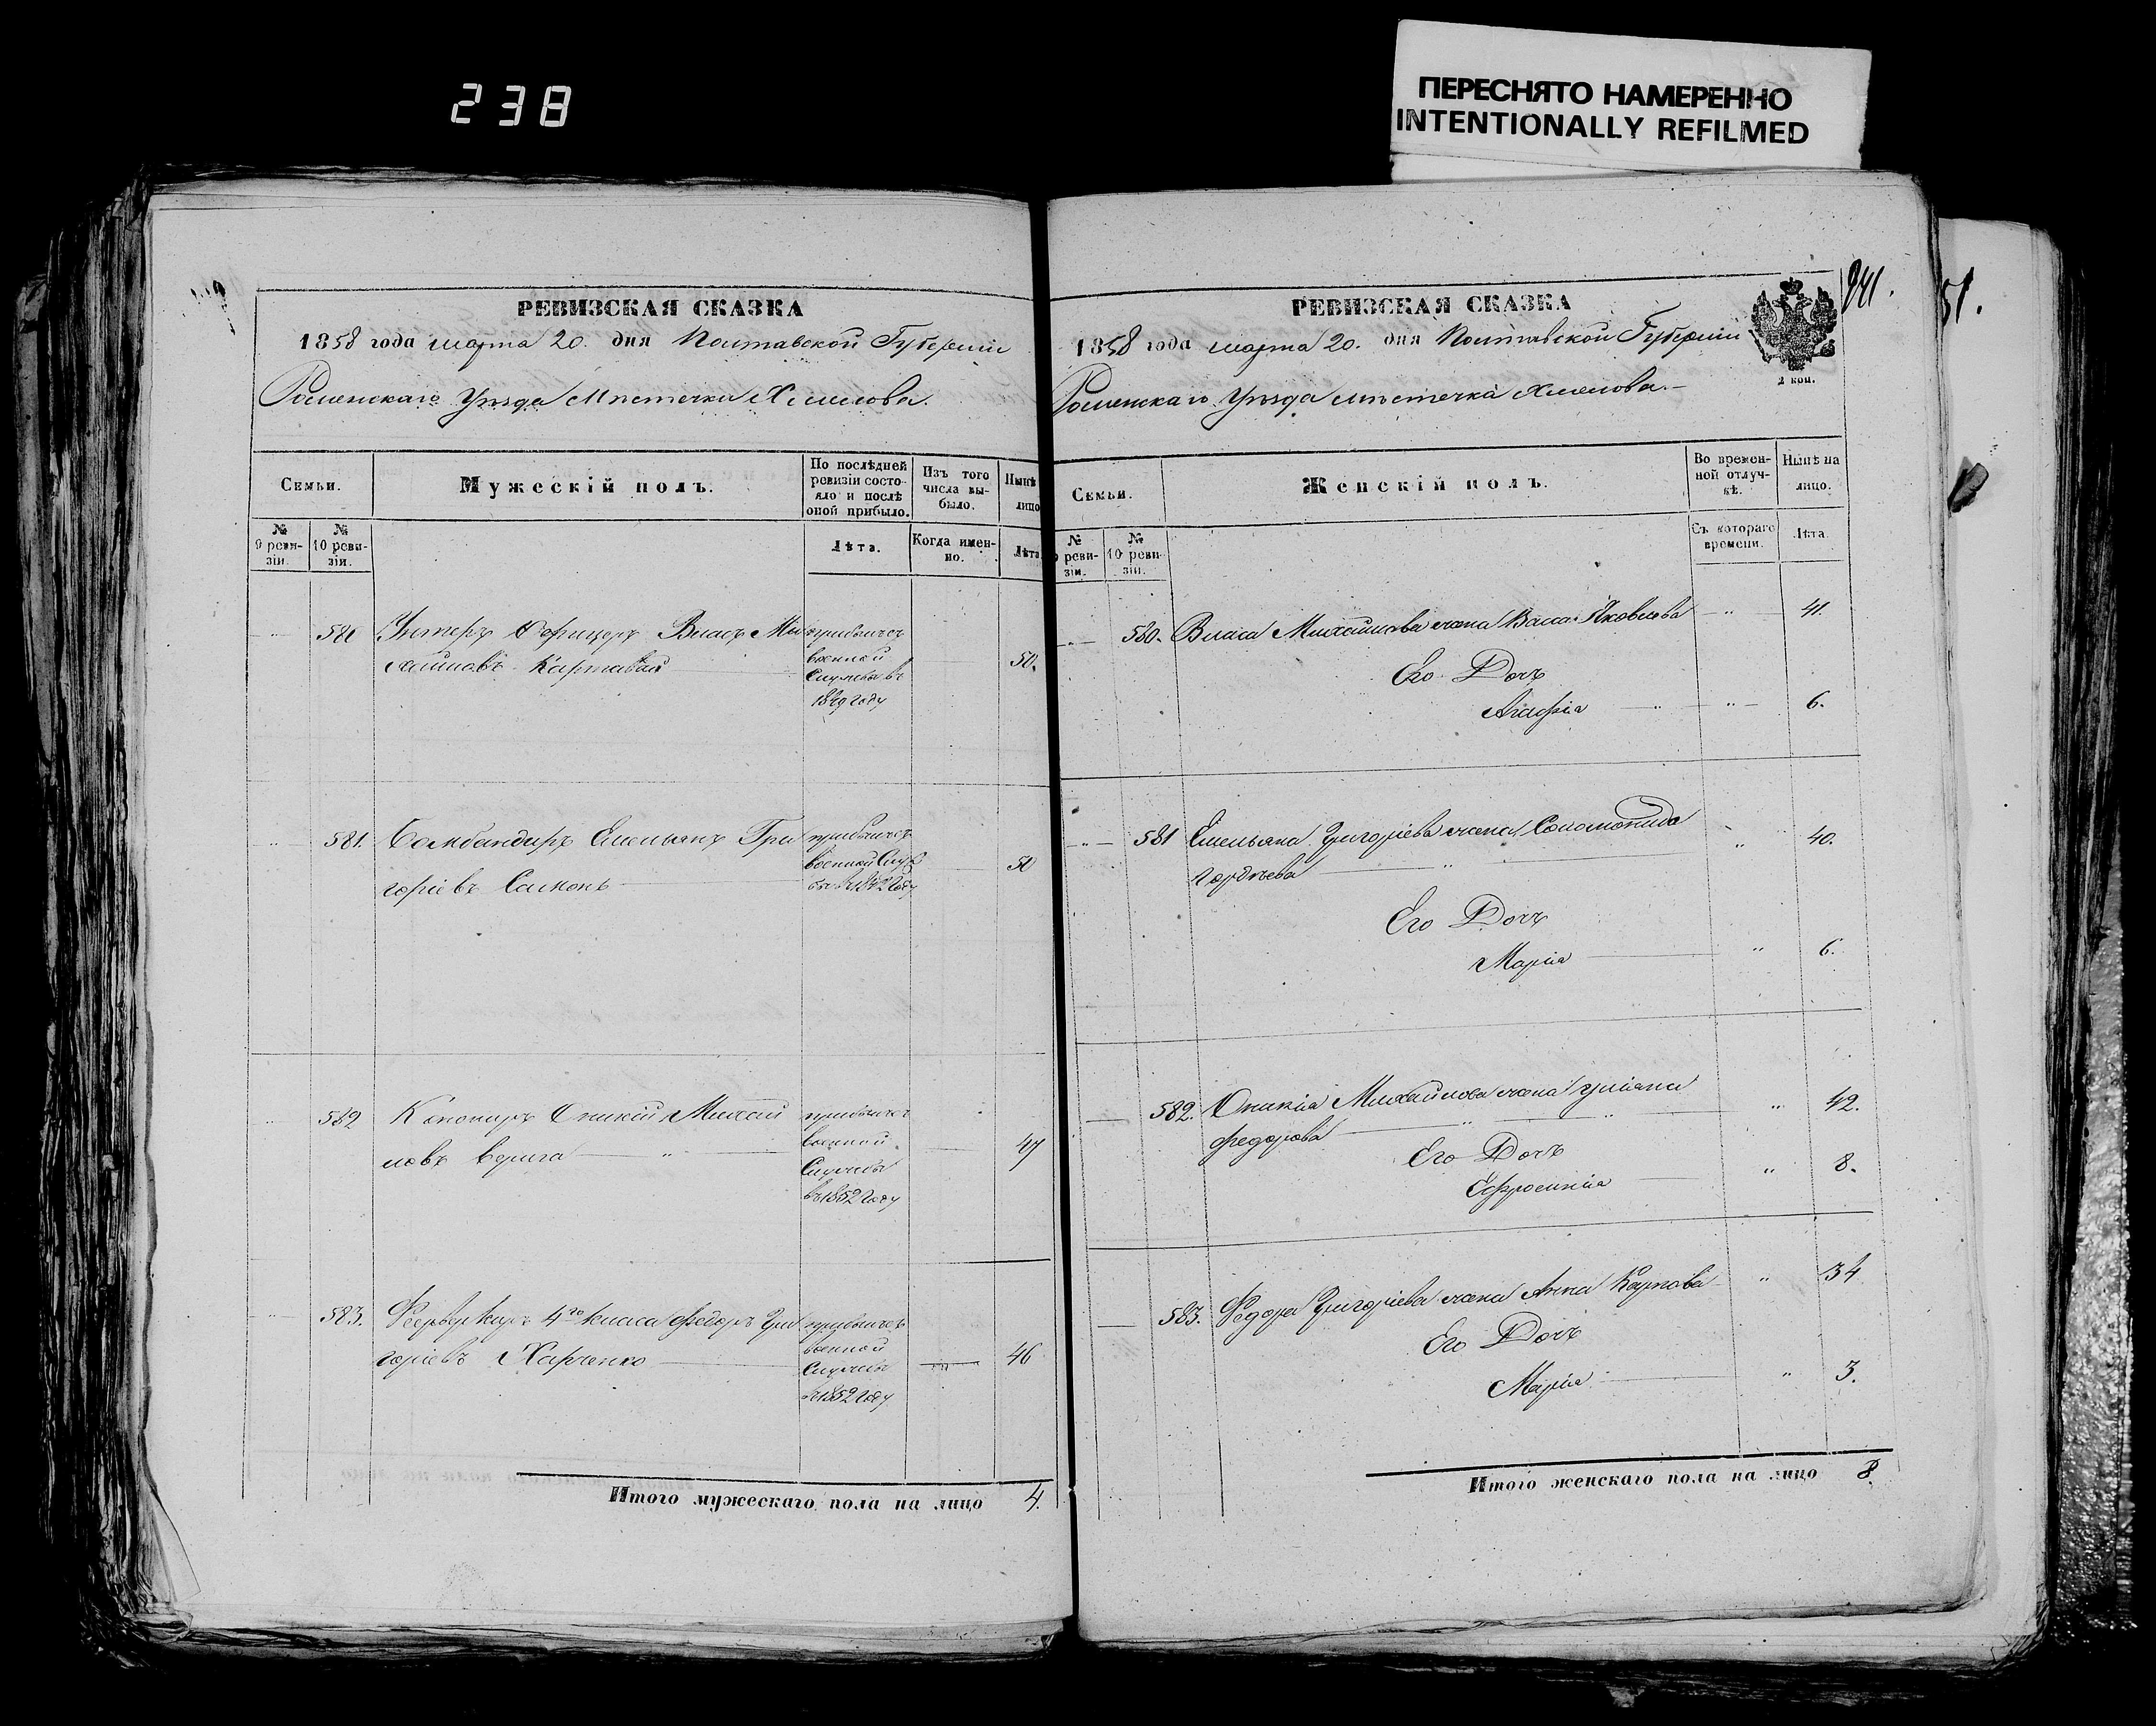 238
ПЕРЕСНЯТО НАМЕРЕННО
INTENTIONALLY REFILMED
РЕВИЗСКАЯ СКАЗКА
1858 года марта 20. дня Полтавской Губерніи
Роменскаго Уѣзда Мѣстечка Хмелова.
Семьи.
Мужескій полъ.
По послѣдней ревизіи состояло и послѣ оной прибыло.
Изъ того числа выбыло.
Нынѣ лицо
№ 9 ревизіи.
№ 10 ревизіи.
Лѣта.
Когда именно.
Лѣта
580 Унтеръ Офицеръ Власъ Ми
хайловъ Картавый
прибылъ съ
военной
Службы въ
1849 году
50.
581. Бомбандиръ Емельянъ Гри
горіевъ Симонъ
прибылъ съ
военной Служ
50
582 Канониръ Оникій Михай
ловъ Верига
прибылъ съ
военной
Службы
въ 1852 году
47
583. Феерверкиръ 4го класа Федоръ Гри
горіевъ Харченко
прибылъ съ
военной
Службы
въ 1852 году
46
Итого мужескаго пола на лицо 4.
РЕВИЗСКАЯ СКАЗКА
241.
51.
1858 года марта 20. дня Полтавской Губерніи
2 коп.
Роменскаго Уѣзда мѣстечка Хмелова.
Семьи.
Женскій полъ.
Во временной отлучкѣ.
Нынѣ на лицо.
№ 9 ревизіи.
№ 10 ревизіи.
Съ котораго времени.
Лѣта.
580. Власа Михайлова жена Васа Яковлева 41
Его Дочъ
Агафія 6.
581 Емельяна Григоріева жена Соломонида 40.
Гордѣева
Его Дочъ
Марія 6.
582. Оникія Михайлова жена Уліяна 42.
Федорова
Его Дочъ 8.
Ефросинія
583. Федора Григоріева жена Анна Карпова 34
Его Дочъ
Марія 3.
Итого женскаго пола на лицо 8.